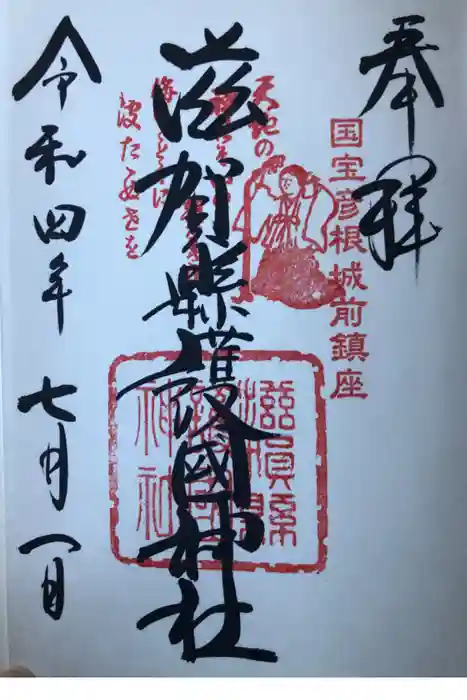 奉拝
国宝彦根城前鎮座
天地の
滋賀縣護國神社
滋賀縣
護國
神社
令和四年七月一日